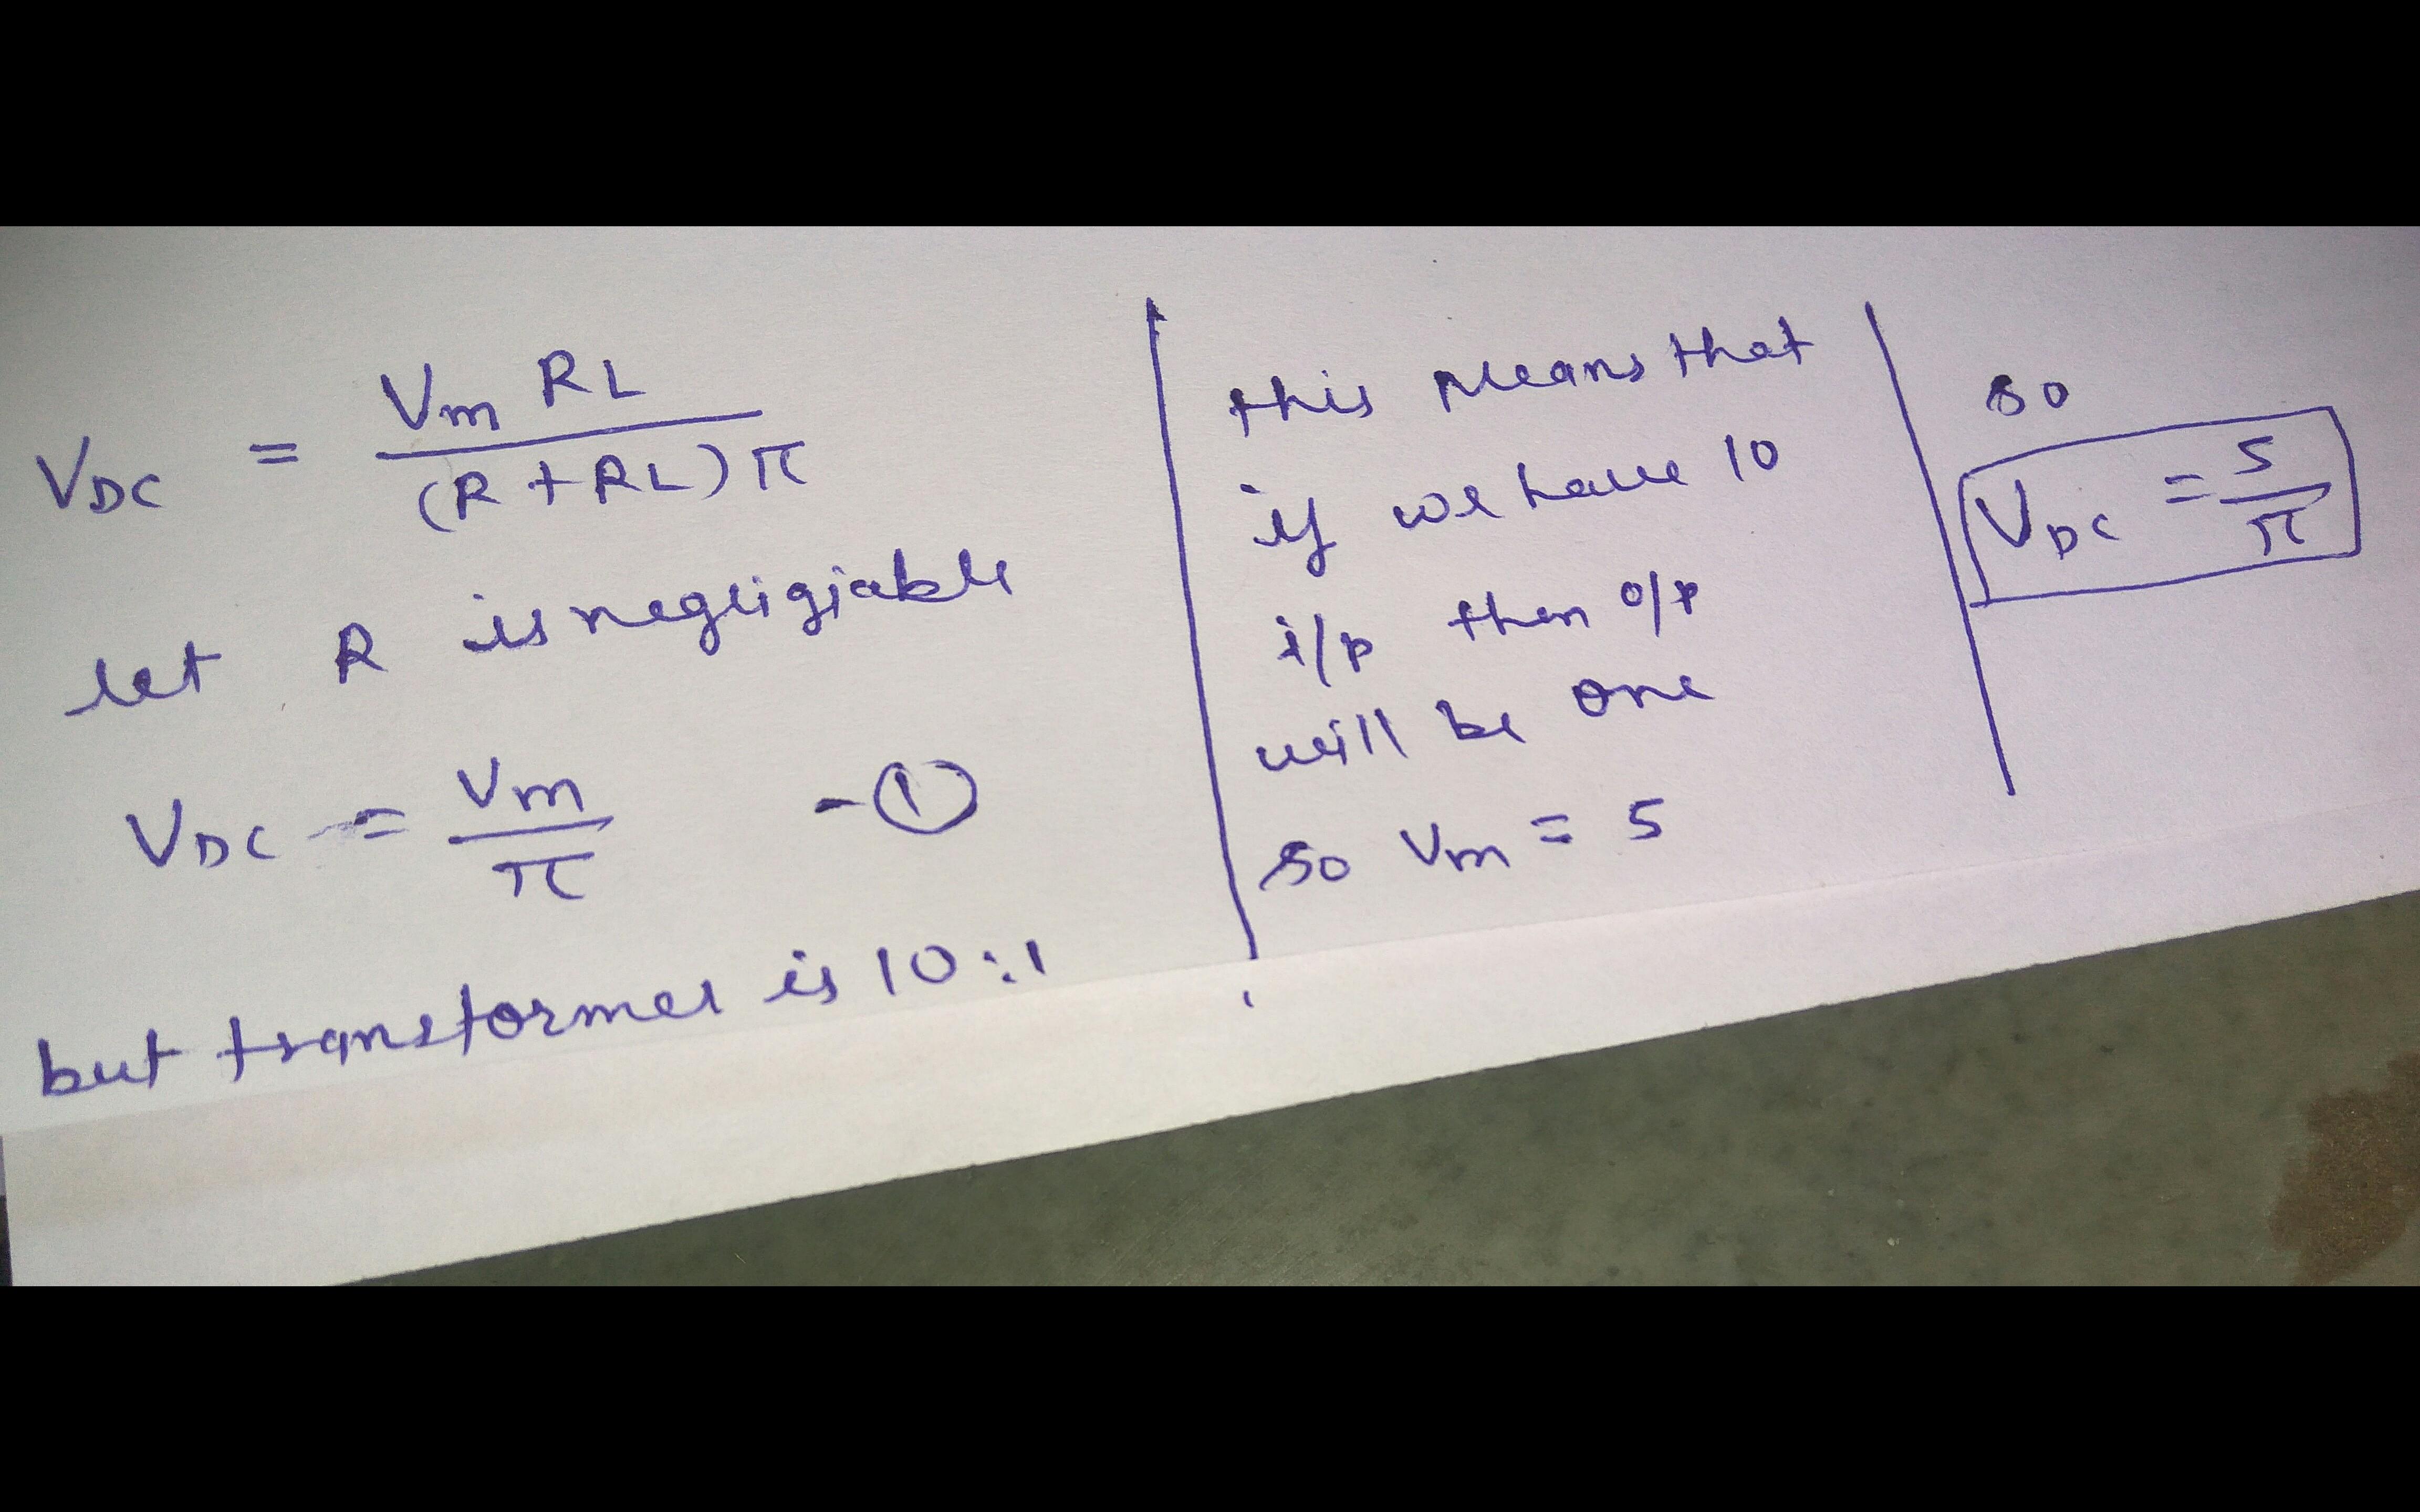 VDC = Vm RL / (R + RL) π
let R is negligiable
VDC = Vm / π - ①
but transformer is 10:1
this Means that
if we have 10
i/p then o/p
will be one
so Vm = 5
so
VDC = 5 / π